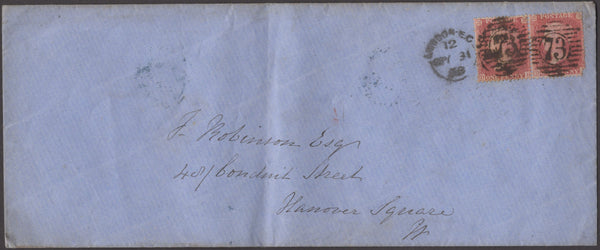 POSTAGE
LONDON-E.C
12
MY 31
73
73
F. Robinson Esq
48/ Conduit Street
Hanover Square
W